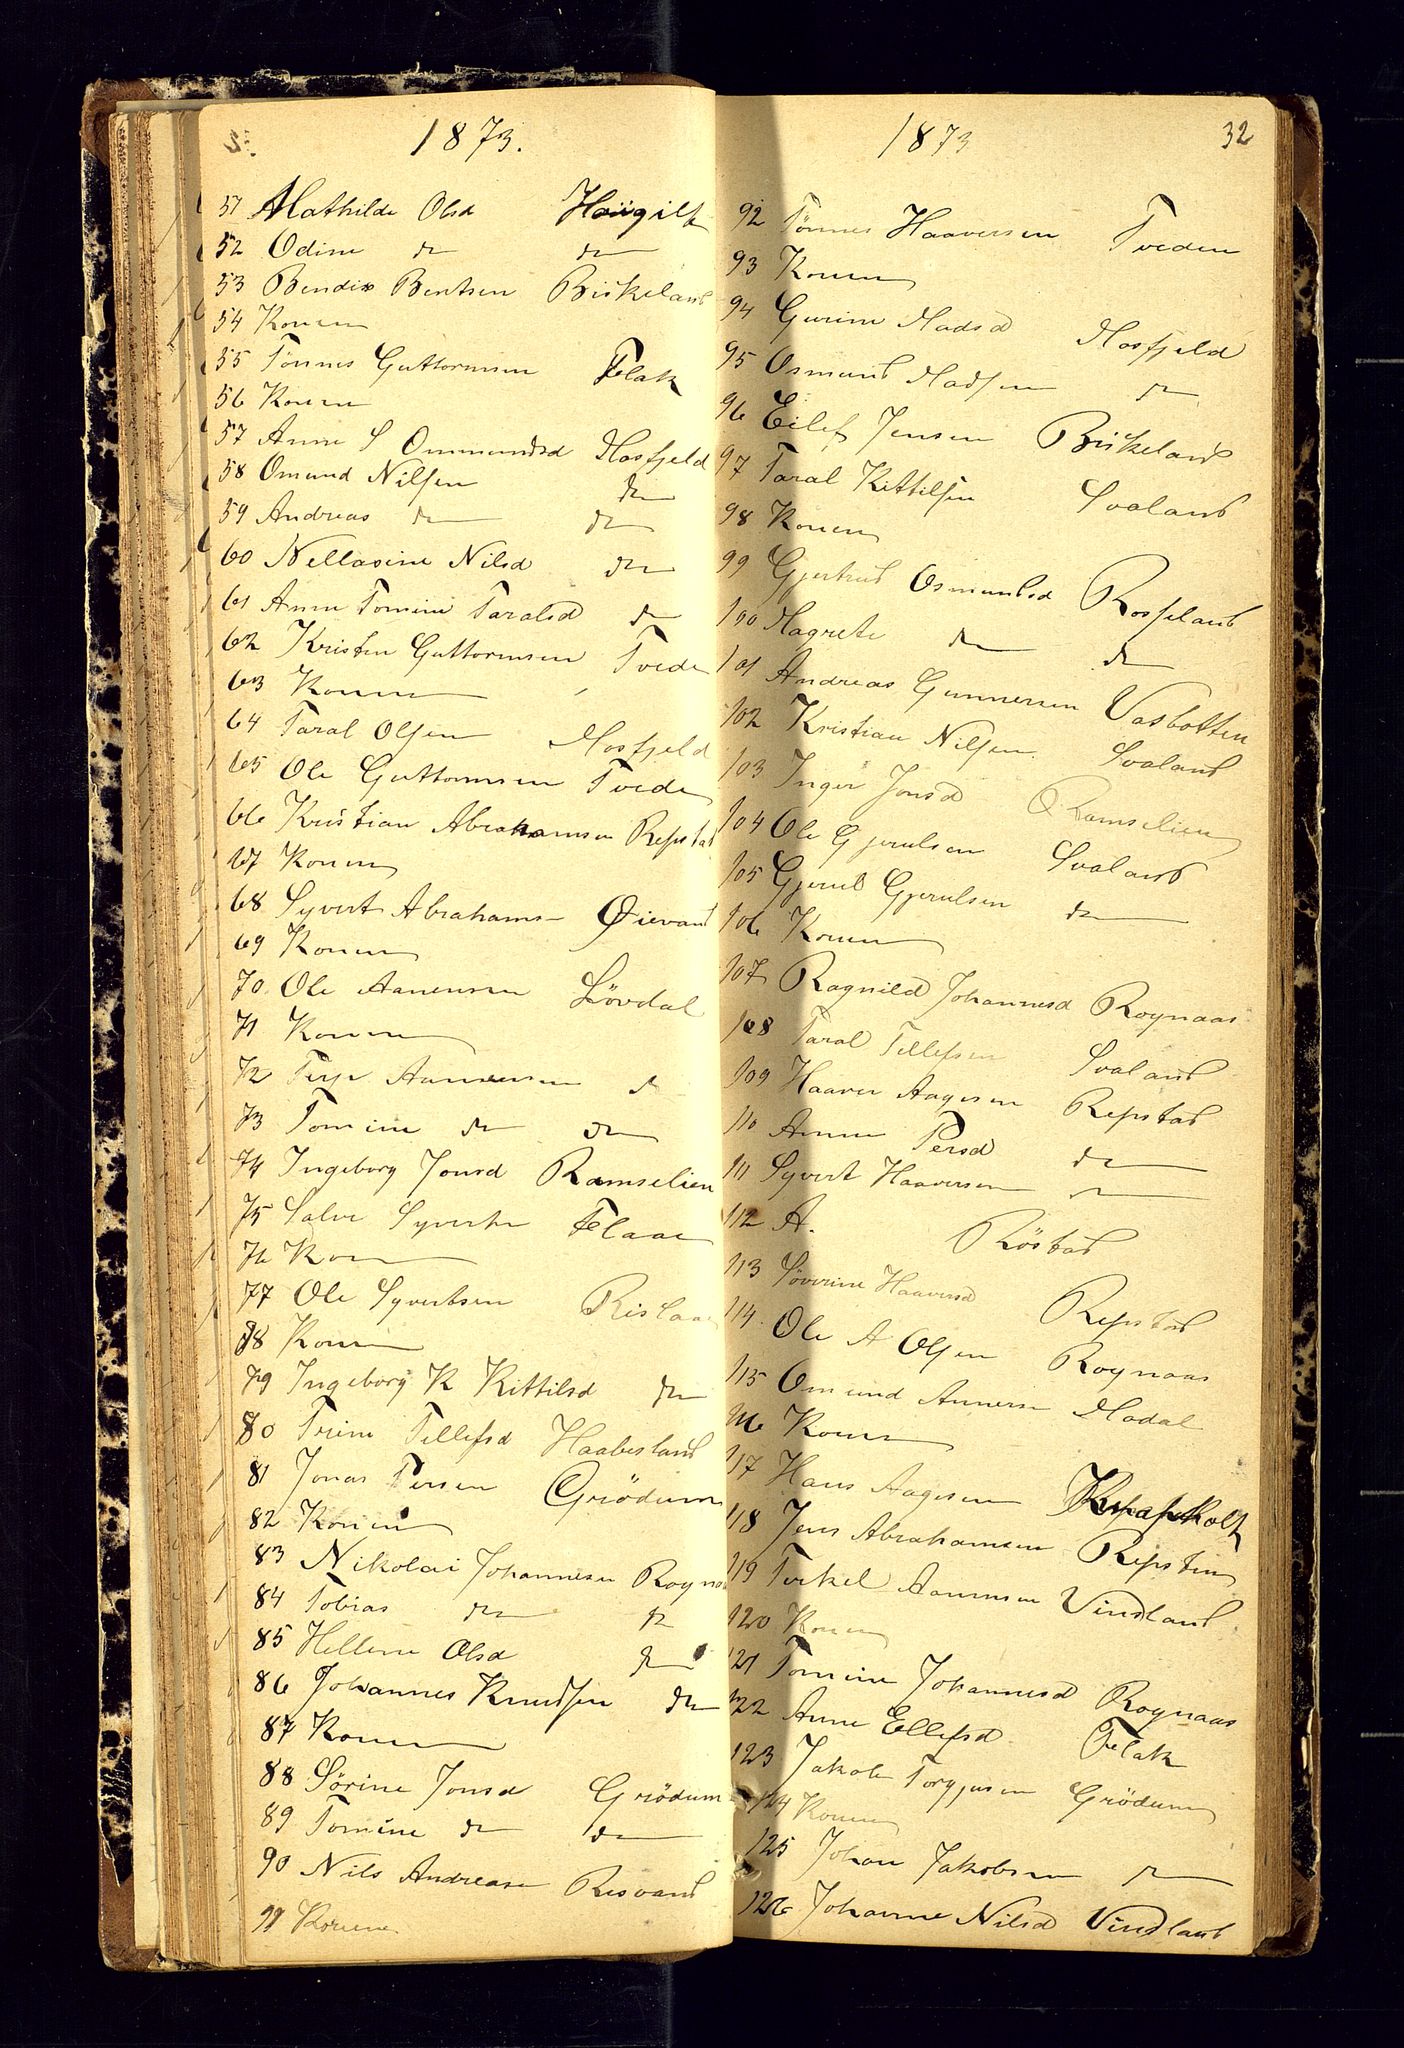 1873.
51 Mathilde Olsd Haugilt
52 Odine do do
53 Bendix Bentsen Birkeland
54 Konen
55 Tønnes Guttormsen Flak
56 Konen
57 Anne S Ommundsd Mosfjeld
58 Omund Nilsen do
59 Andreas do do
60 Nellasine Nilsd do
61 Anne Tomine Taralsd do
62 Kristen Guttormsen Tvede
63 Konen
64 Taral Olsen Mosfjeld
65 Ole Guttormsen Tvede
66 Kristian Abrahamsen Repstad
67 Konen
68 Syvert Abrahams Øievand
69 Konen
70 Ole Aanensen Lövdal
71 Konen
72 Terje Aanensen d
73 Tomine do do
74 Ingeborg Jonsd Ramselien
75 Salve Syverts Flaa
76 Kon
77 Ole Syvertsen Rislaa
78 Konen
79 Ingeborg K Kittilsd do
80 Trine Tellefsd Haabesland
81 Jonas Persen Grödum
82 Konen
83 Nikolai Johannesen Rogna
84 Tobias do do
85 Hellene Olsd do
86 Johannes Knudsen do
87 Konen
88 Sörine Jonsd Grödum
89 Tomine do do
90 Nils Andreasen Resvand
91 Konen
1873 32
92 Tønnes Haaversen Tveden
93 Konen
94 Gurine Madsd Mosfjeld
95 Osmund Madsen do
96 Eilef Jensen Birkeland
97 Taral Kittilsen Svaland
98 Konen
99 Gjertrud Osmundsd Rosseland
100 Magrete do do
101 Andreas Gunnersen Vasbotten
102 Kristian Nilsen Svaland
103 Inger Jonsd Ramselien
104 Ole Gjerulsen Svaland
105 Gjerul Gjerulsen do
106 Konen
107 Ragnild Johannesd Rognaas
108 Taral Tellefsen Svaland
109 Haaver Aagesen Repstad
110 Anne Persd do
111 Syvert Haaversen do
112 A. Röstad
113 Söverine Haaversd Repstad
114 Ole A Olsen Rognaas
115 Omund Aanens Modal
116 Konen
117 Hans Aagesen
118 Jens Abrahamsen Repstad
119 Terkel Aanensen Vindland
120 Konen
121 Tomine Johannesd Rognaas
122 Anne Ellefsd Flak
123 Jakob Torgjusen Grödum
124 Konen
125 Johan Jakobsen do
126 Johanne Nilsd Vindland